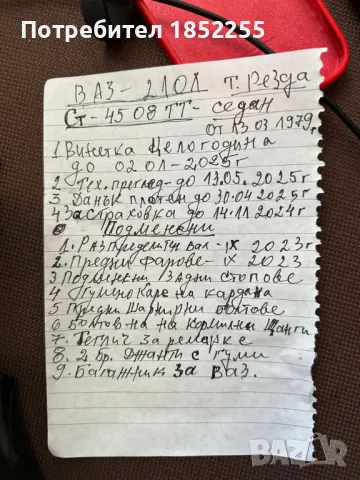 Потребител 1852255
ВАЗ-2101 Т. Резда
Ст-4508ТТ- седан
от 13 03 1979г
1 Винетка целогодишна
до 02 01-2025г
2 Тех. преглед-до 13.05.2025г
3 Данък платен до 30 04 2025г
4 Застраховка до 14.11 2024г
Подменени
1. Разпредител вал-IX 2023г
2. Предни фарове-IX 2023
3 Подменени задни стопове
4 Гумено Каре на кардана
5 Предни Шарнирни болтове
6 Болтовна на кормилни щанги
7. Теглич за ремарке
8. 2 бр. Джанти с гуми
9. Багажник за Ваз.
BAZAR
bg